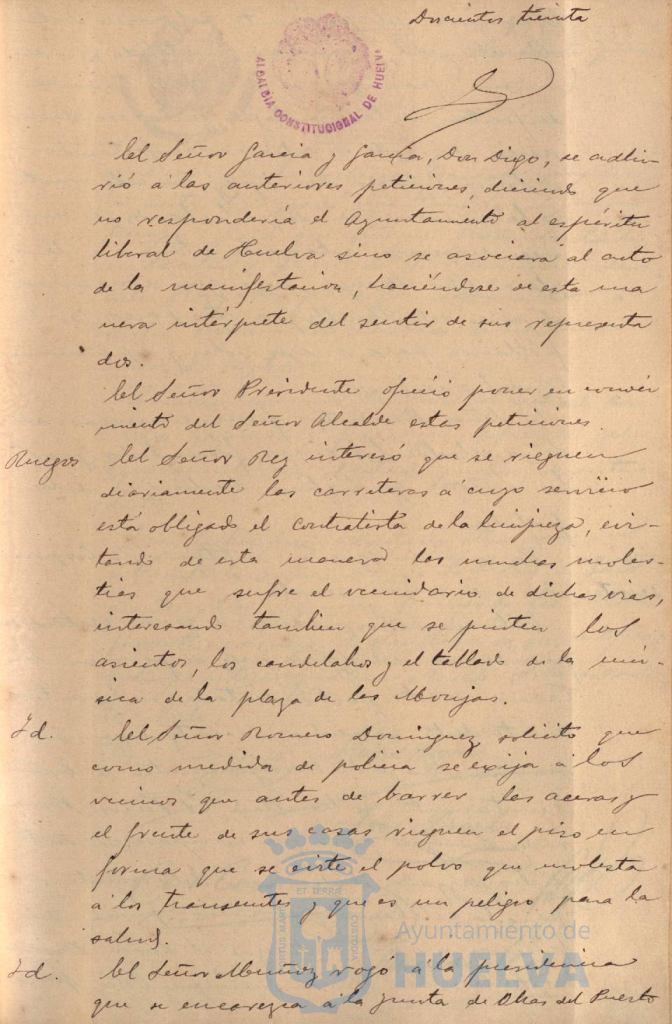 Doscientos treinta
ALCALDÍA CONSTITUCIONAL DE HUELVA
El Señor García y García, Don Diego, se adhi-
rió á las anteriores peticiones, diciendo que
no respondería el Ayuntamiento al espíritu
liberal de Huelva sino se asociara al acto
de la manifestacion, haciéndose de esta ma
nera intérprete del sentir de sus representa
dos.
El Señor Presidente ofreció poner en conoci
miento del Señor Alcalde estas peticiones.
Ruegos El Señor Rey interesó que se rieguen
diariamente las carreteras á cuyo servicio
está obligado el contratista de la limpieza, evi-
tando de esta manera las muchas moles-
tias que sufre el vecindario de dichas vias,
interesando tambien que se pinten los
asientos, los candelabros y el tablado de la mú-
sica de la plaza de las Monjas.
Id. El Señor Romero Dominguez solicitó que
como medida de policia se exija á los
vecinos que antes de barrer las aceras y
el frente de sus casas rieguen el piso en
forma que se evite el polvo que molesta
á los transeuntes y que es un peligro para la
salud.
Id. El Señor Muñoz rogó á la presidencia
que se encarezca á la Junta de Obras del Puerto
Ayuntamiento de
HUELVA